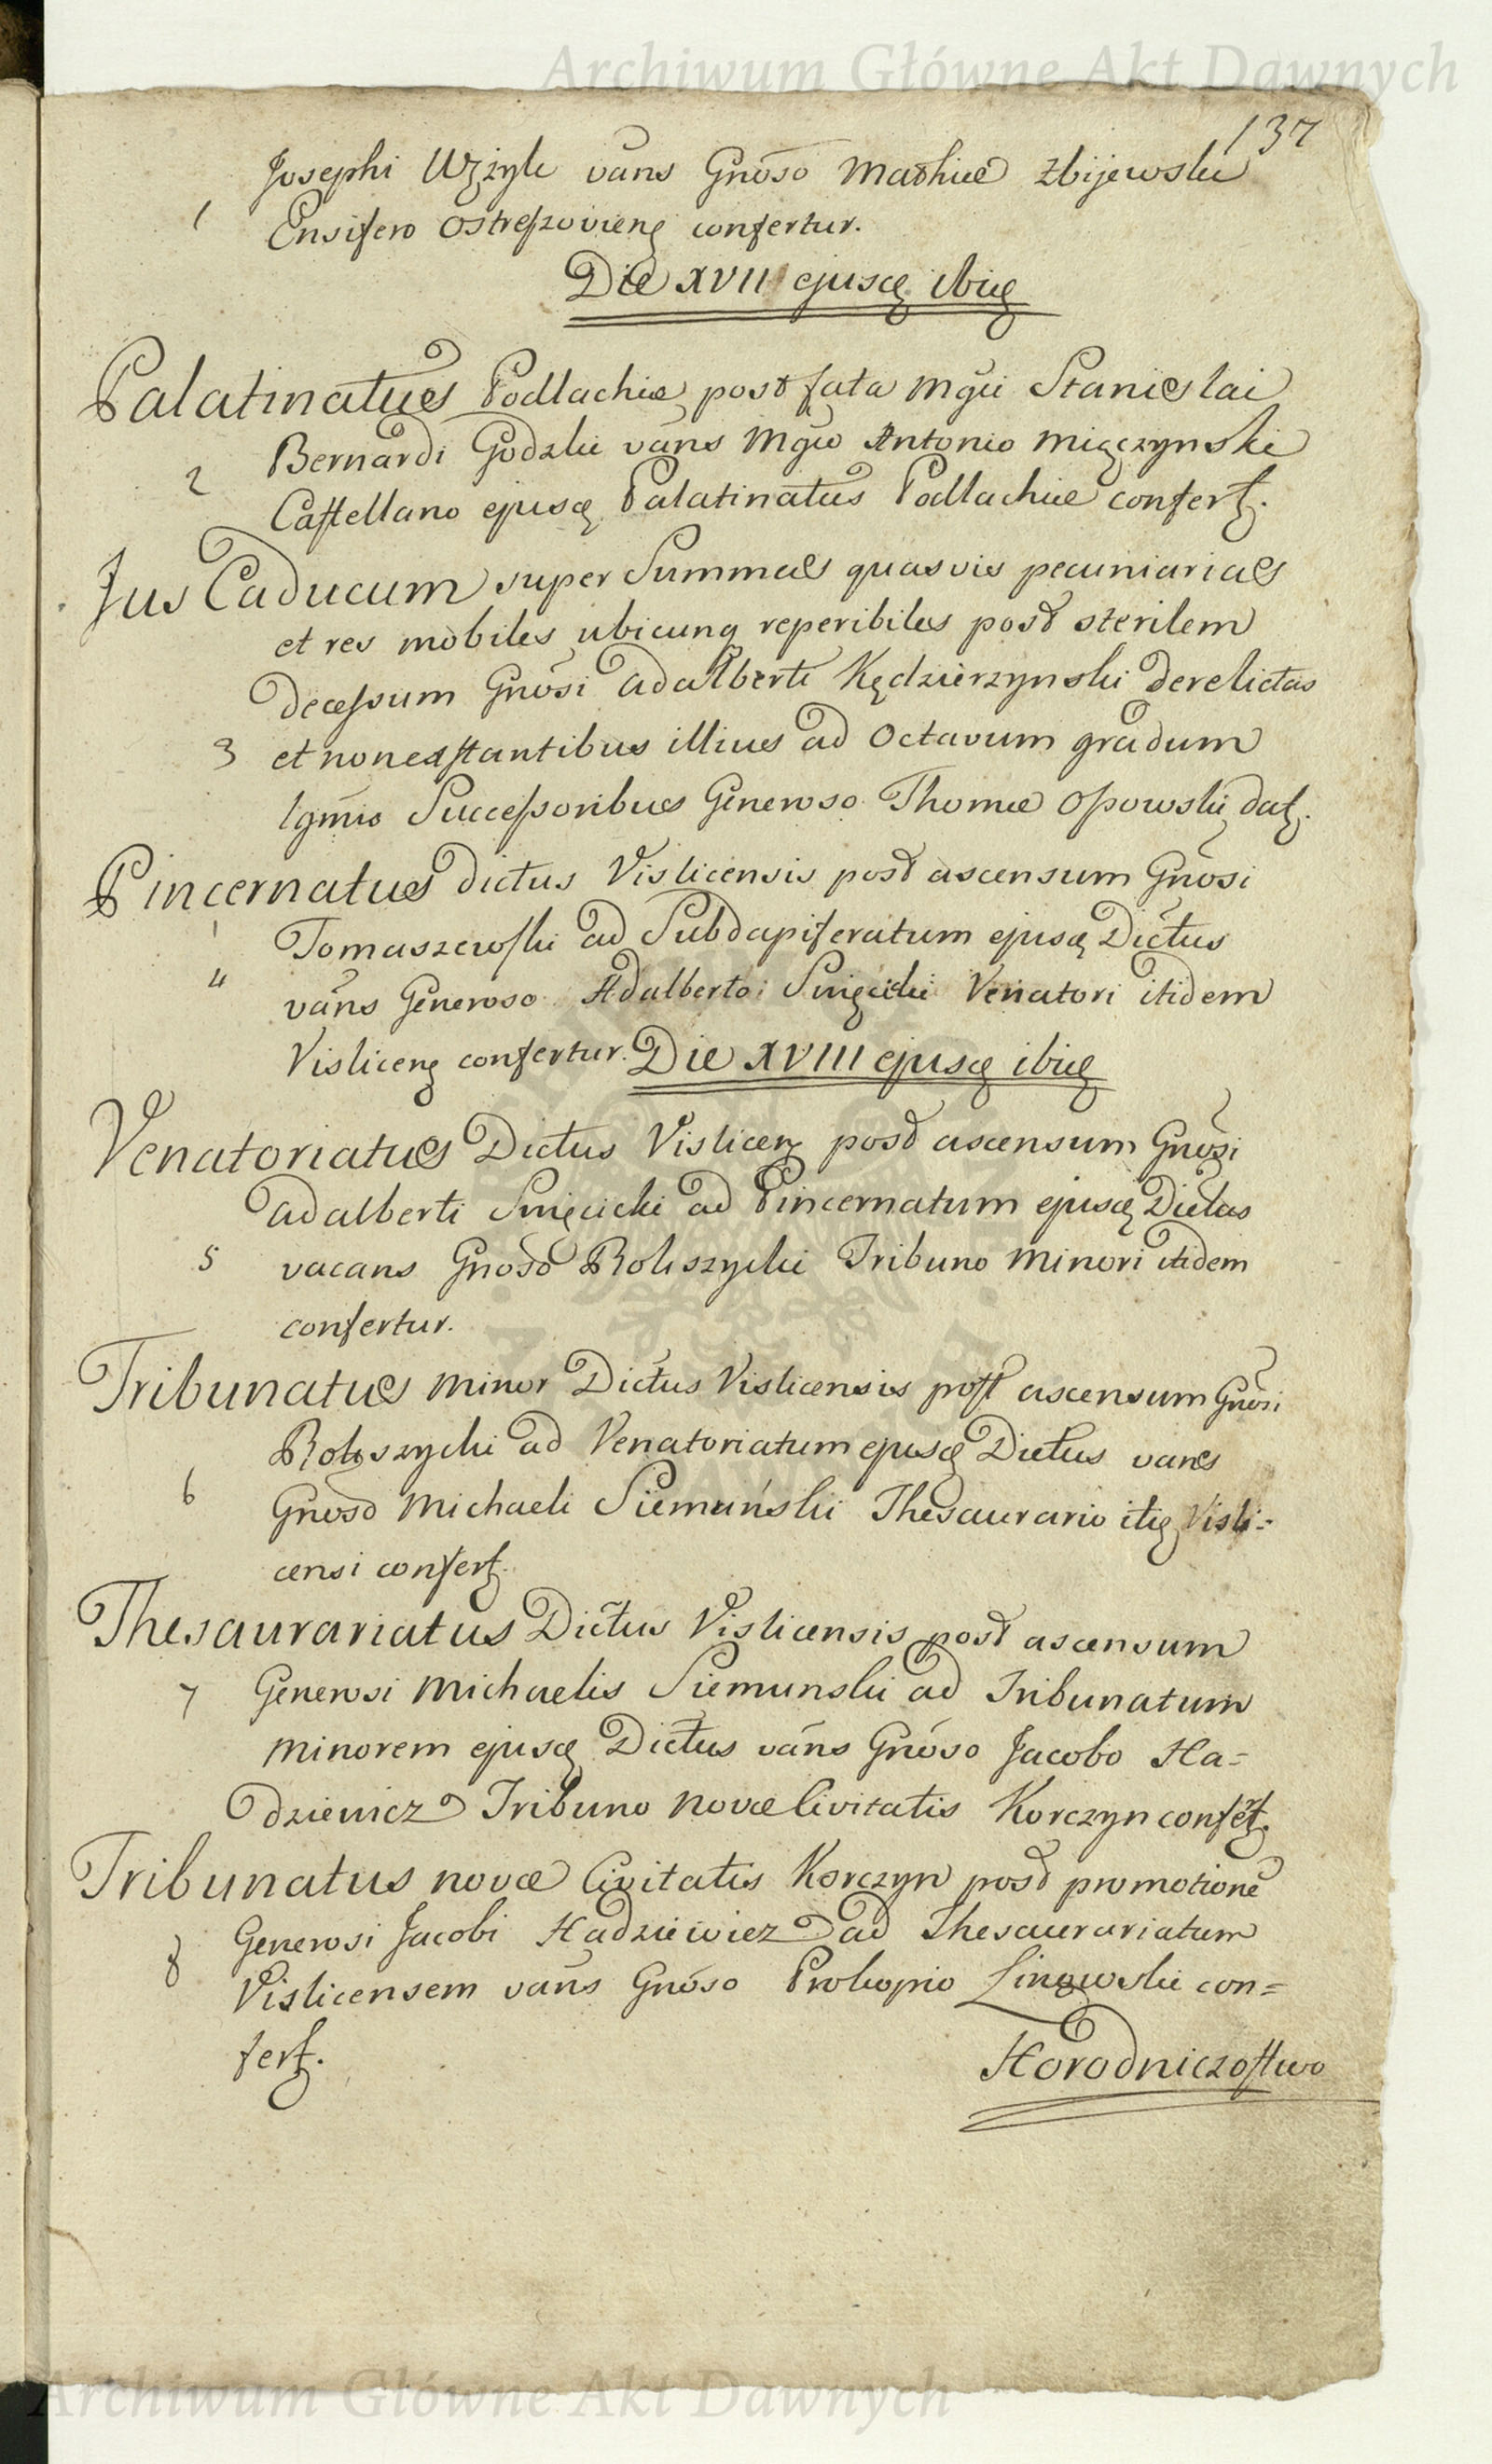 Archiwum Główne Akt Dawnych
137
Josephi Wężyk vãns Gnõso Mathiæ Zbijewski
1 Ensifero Ostreszovienꝫ confertur.
Die XVII ejusdꝫ ibidꝫ
Palatinatus Podlachiæ post fata Mgci Stanislai
Bernardi Godzki vãns Mgco Antonio Mięczynski
2 Castellano ejusdꝫ Palatinatus Podlachiæ confertꝫ.
Jus Caducum super Summas quasvis pecuniarias
et res mobiles ubicunq reperibiles post sterilem
Decessum Gnõsi Adalberti Kędzierzynski derelictas
3 et non exstantibus illius ad Octavum gradum
lgmis Successoribus Generoso Thomæ Ossowski datꝫ.
Pincernatus Dictus Vislicensis post ascensum Gnõsi
Tomaszewski ad Subdapiferatum ejusdꝫ Dictus
4 vãns Generoso Adalberto Swięcicki Venatori itidem
Vislicenꝫ confertur. Die XVIII ejusdꝫ ibidꝫ
Venatoriatus Dictus Vislicenꝫ post ascensum Gnõsi
Adalberti Swięcicki ad Pincernatum ejusdꝫ Dictus
5 vacans Gnõso Rokszycki Tribuno Minori itidem
confertur.
Tribunatus Minor Dictus Vislicensis post ascensum Gnõsi
Rokszycki ad Venatoriatum ejusdꝫ Dictus vans
6 Gnoso Michaeli Siemuński Thesaurario itidꝫ Visli=
censi confertꝫ.
Thesaurariatus Dictus Vislicensis post ascensum
7 Generosi Michaelis Siemunski ad Tribunatum
Minorem ejusdꝫ Dictus vãns Gnõso Jacobo Ha=
dziewicz Tribuno Novæ Civitatis Korczyn confertꝫ.
Tribunatus novæ Civitatis Korczyn post promotionẽ
Generosi Jacobi Hadziewicz ad Thesaurariatum
8 Vislicensem vãns Gnõso Prokopio Linowski con=
fertꝫ.
Horodniczostwo
Archiwum Główne Akt Dawnych